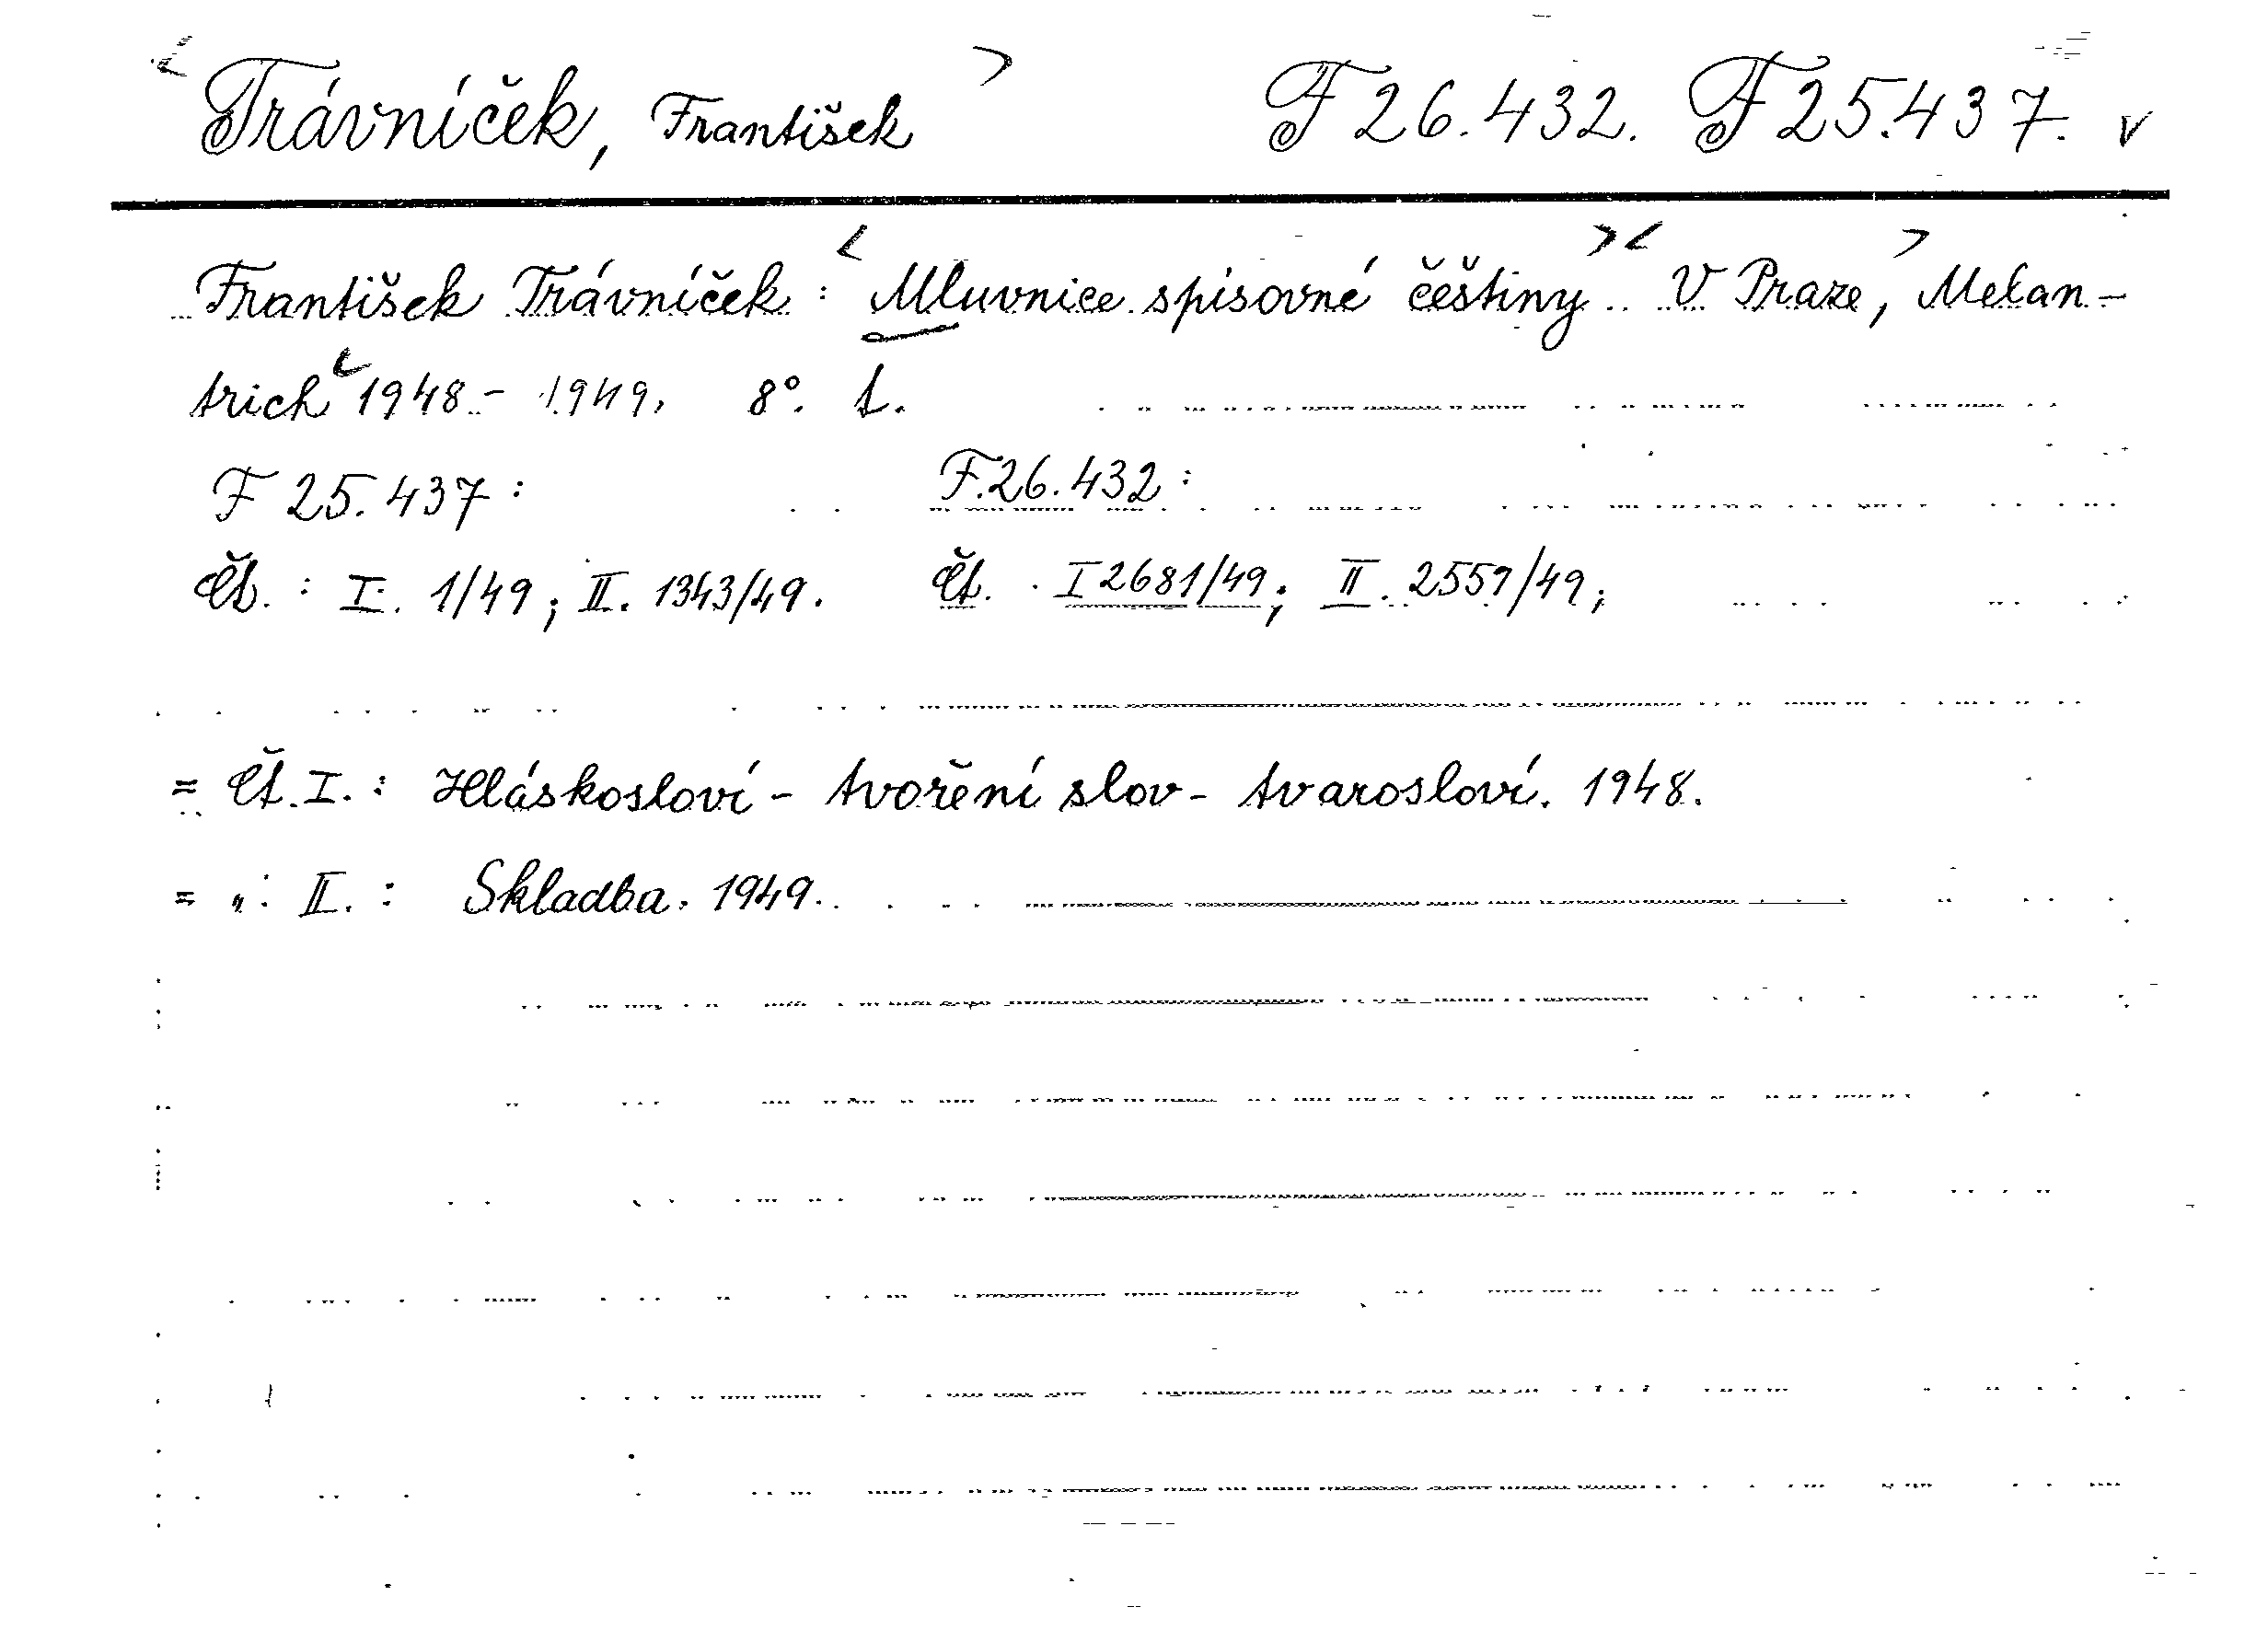 < Trávníček, František > F 26.432. F 25.437. v
František Trávníček: < Mluvnice spisovné češtiny. > < V Praze, > Melan-
trich < 1948.- 1949. 8°. t.
F 25.437: F.26.432:
Čt.: I. 1/49; II. 1343/49. Čt. I 2681/49; II. 2557/49;
= Čt. I.: Hláskosloví - tvoření slov - tvarosloví. 1948.
= „ II.: Skladba. 1949.